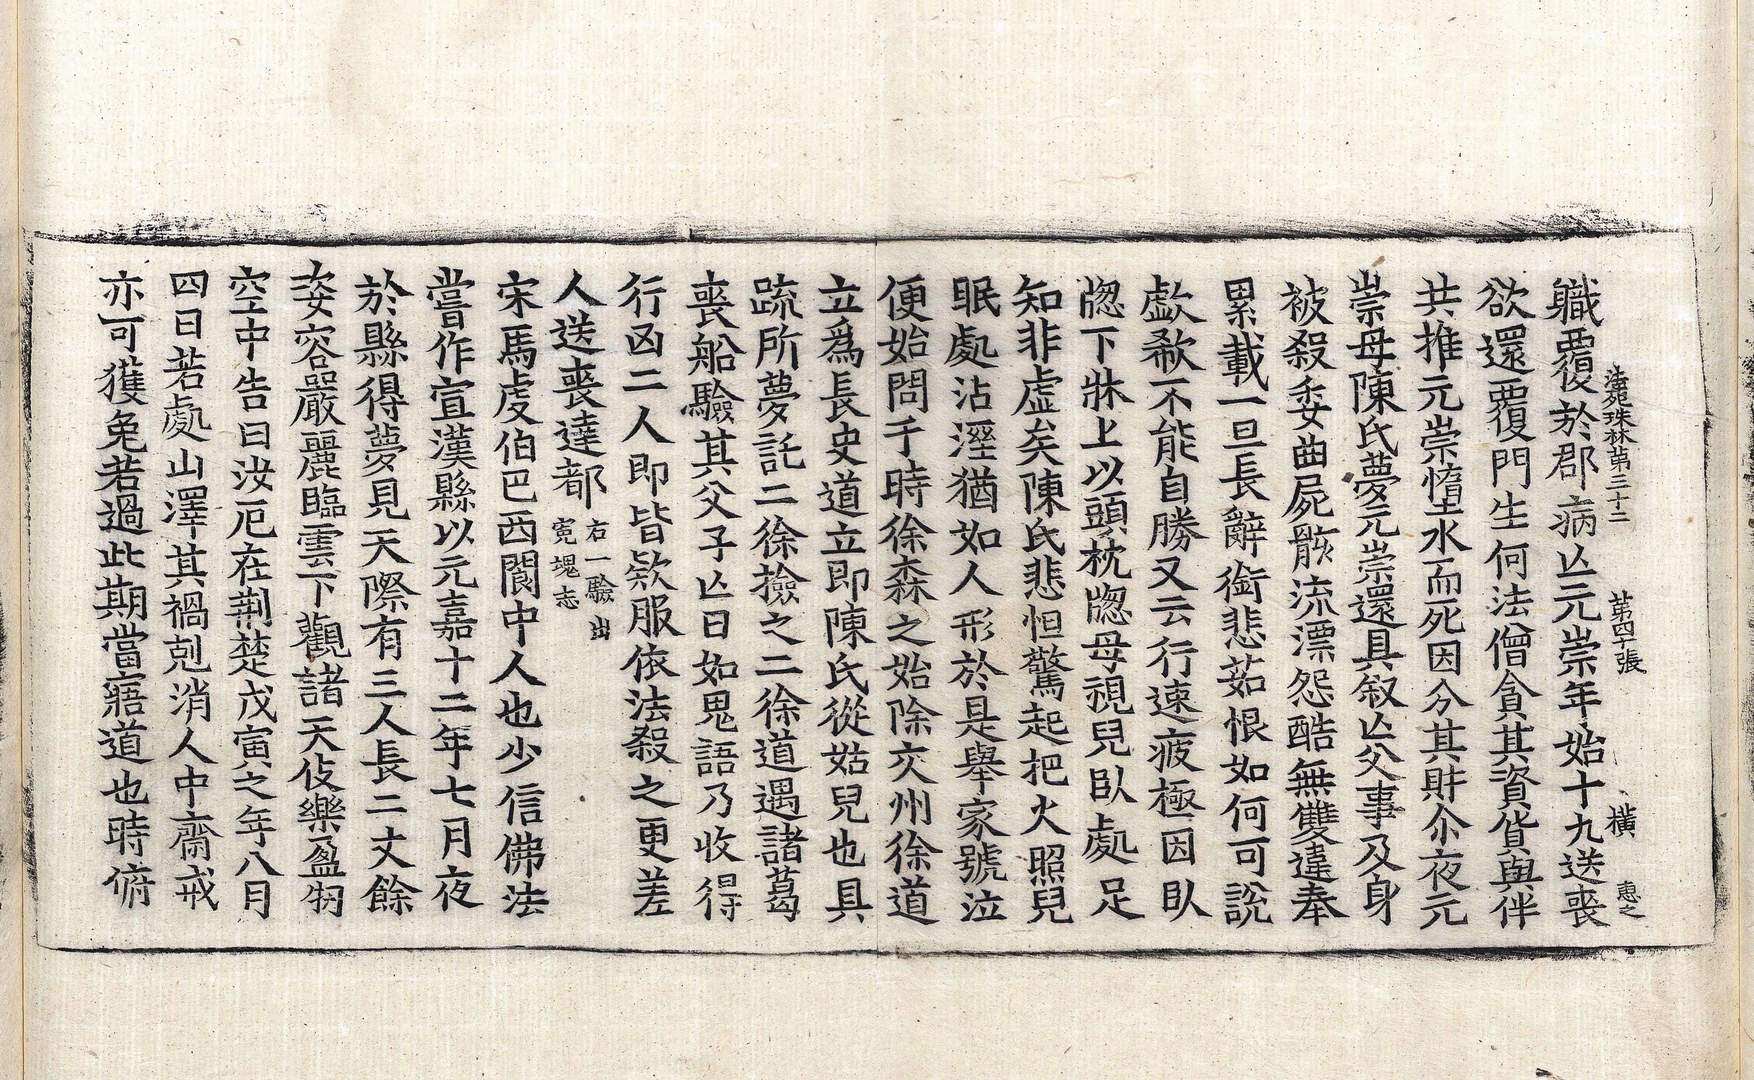 法苑珠林第三十二　第四十張　橫　惠之
職覆於郡病亾元崇年始十九送喪
欲還覆門生何法僧貪其資貨與伴
共推元崇墮水而死因分其財尒夜元
崇母陳氏夢元崇還具叙亾父事及身
被殺委曲屍骸流漂怨酷無雙違奉
累載一旦長辭銜悲茹恨如何可說
歔欷不能自勝又云行速疲極因臥
牎下牀上以頭枕牎母視兒臥處足
知非虛矣陳氏悲怛驚起把火照兒
眠處沾溼猶如人形於是舉家號泣
便始問于時徐森之始除交州徐道
立爲長史道立即陳氏從姑兒也具
疏所夢託二徐撿之二徐道遇諸葛
喪船驗其父子亾日如鬼語乃收得
行凶二人即皆欵服依法殺之更差
人送喪達都右一驗出寃魂志
宋馬虔伯巴西閬中人也少信佛法
嘗作宣漢縣以元嘉十二年七月夜
於縣得夢見天際有三人長二丈餘
姿容嚴麗臨雲下觀諸天伎樂盈牣
空中告曰汝厄在荆楚戊寅之年八月
四日若處山澤其禍剋消人中齋戒
亦可獲免若過此期當寤道也時俯